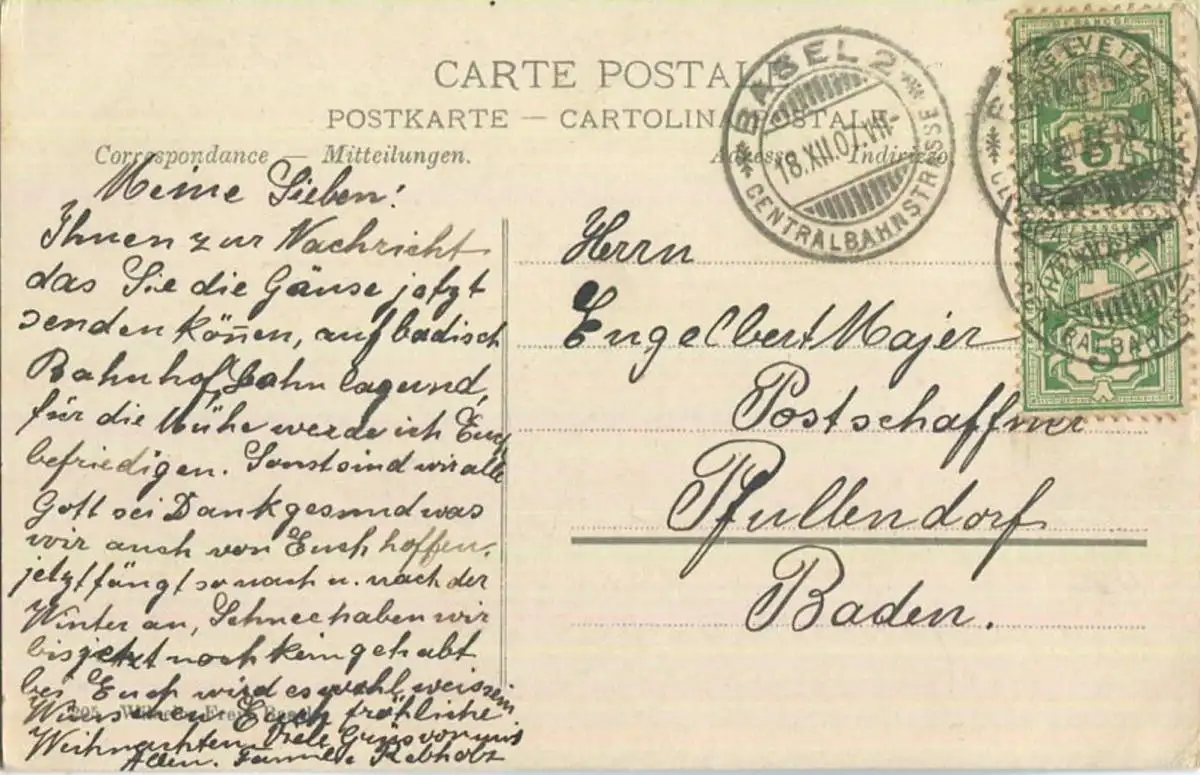 CARTE POSTALE
POSTKARTE — CARTOLINA POSTALE
Correspondance — Mitteilungen.
Adresse — Indirizzo
BASEL 2
18.XII.07.VII-
CENTRALBAHNSTRASSE
HELVETIA
5
5
Meine Lieben!
Ihnen zur Nachricht
das Sie die Gänse jetzt
senden kön̄en, auf badisch
Bahnhof, Bahnlagernd,
für die Mühe werde ich Euch
befriedigen. Sonst sind wir alle
Gott sei Dank gesund was
wir auch von Euch hoffen.
jetzt fängt so nach u. nach der
Winter an, Schnee haben wir
bis jetzt noch kein gehabt
bei Euch wird es wohl weiss sein
Wünschen Euch fröhliche
Weihnachten. Viele Grüs von uns
Allen. Familie Rebholz
Herrn
Engelbert Majer
Postschaffner
Pfullendorf
Baden.